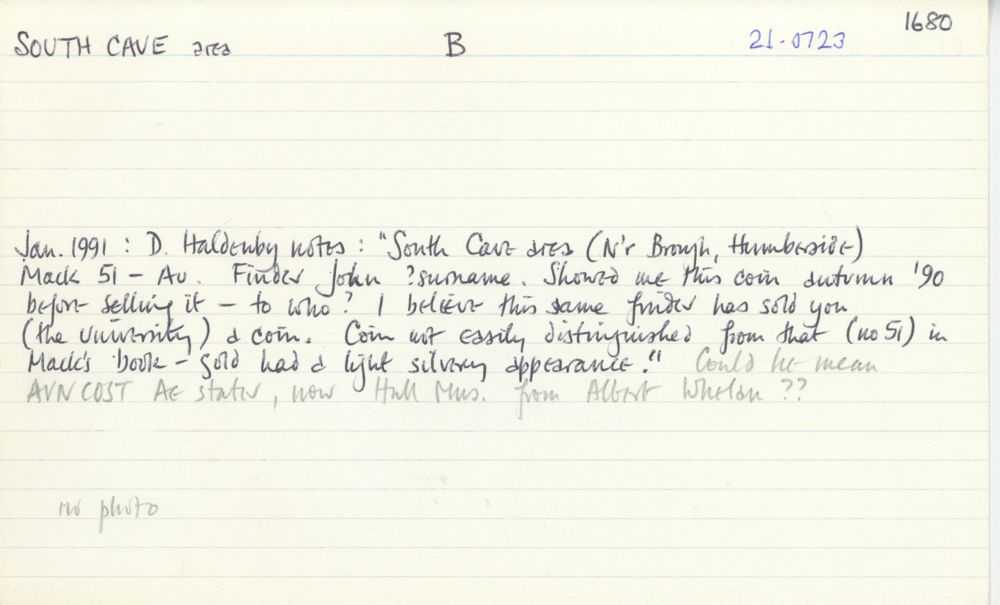 1680
SOUTH CAVE area B 21-0723
Jan. 1991 : D. Haldenby notes : "South Cave area (N'r Brough, Humberside)
Mack 51 – Au. Finder John ?surname. Showed me this coin autumn '90
before selling it – to who? I believe this same finder has sold you
(the University) a coin. Coin not easily distinguished from that (no 51) in
Mack's book – gold had a light silvery appearance." Could he mean
AVN COST AE stater, now Hull Mus. from Albert Whelan ??
no photo